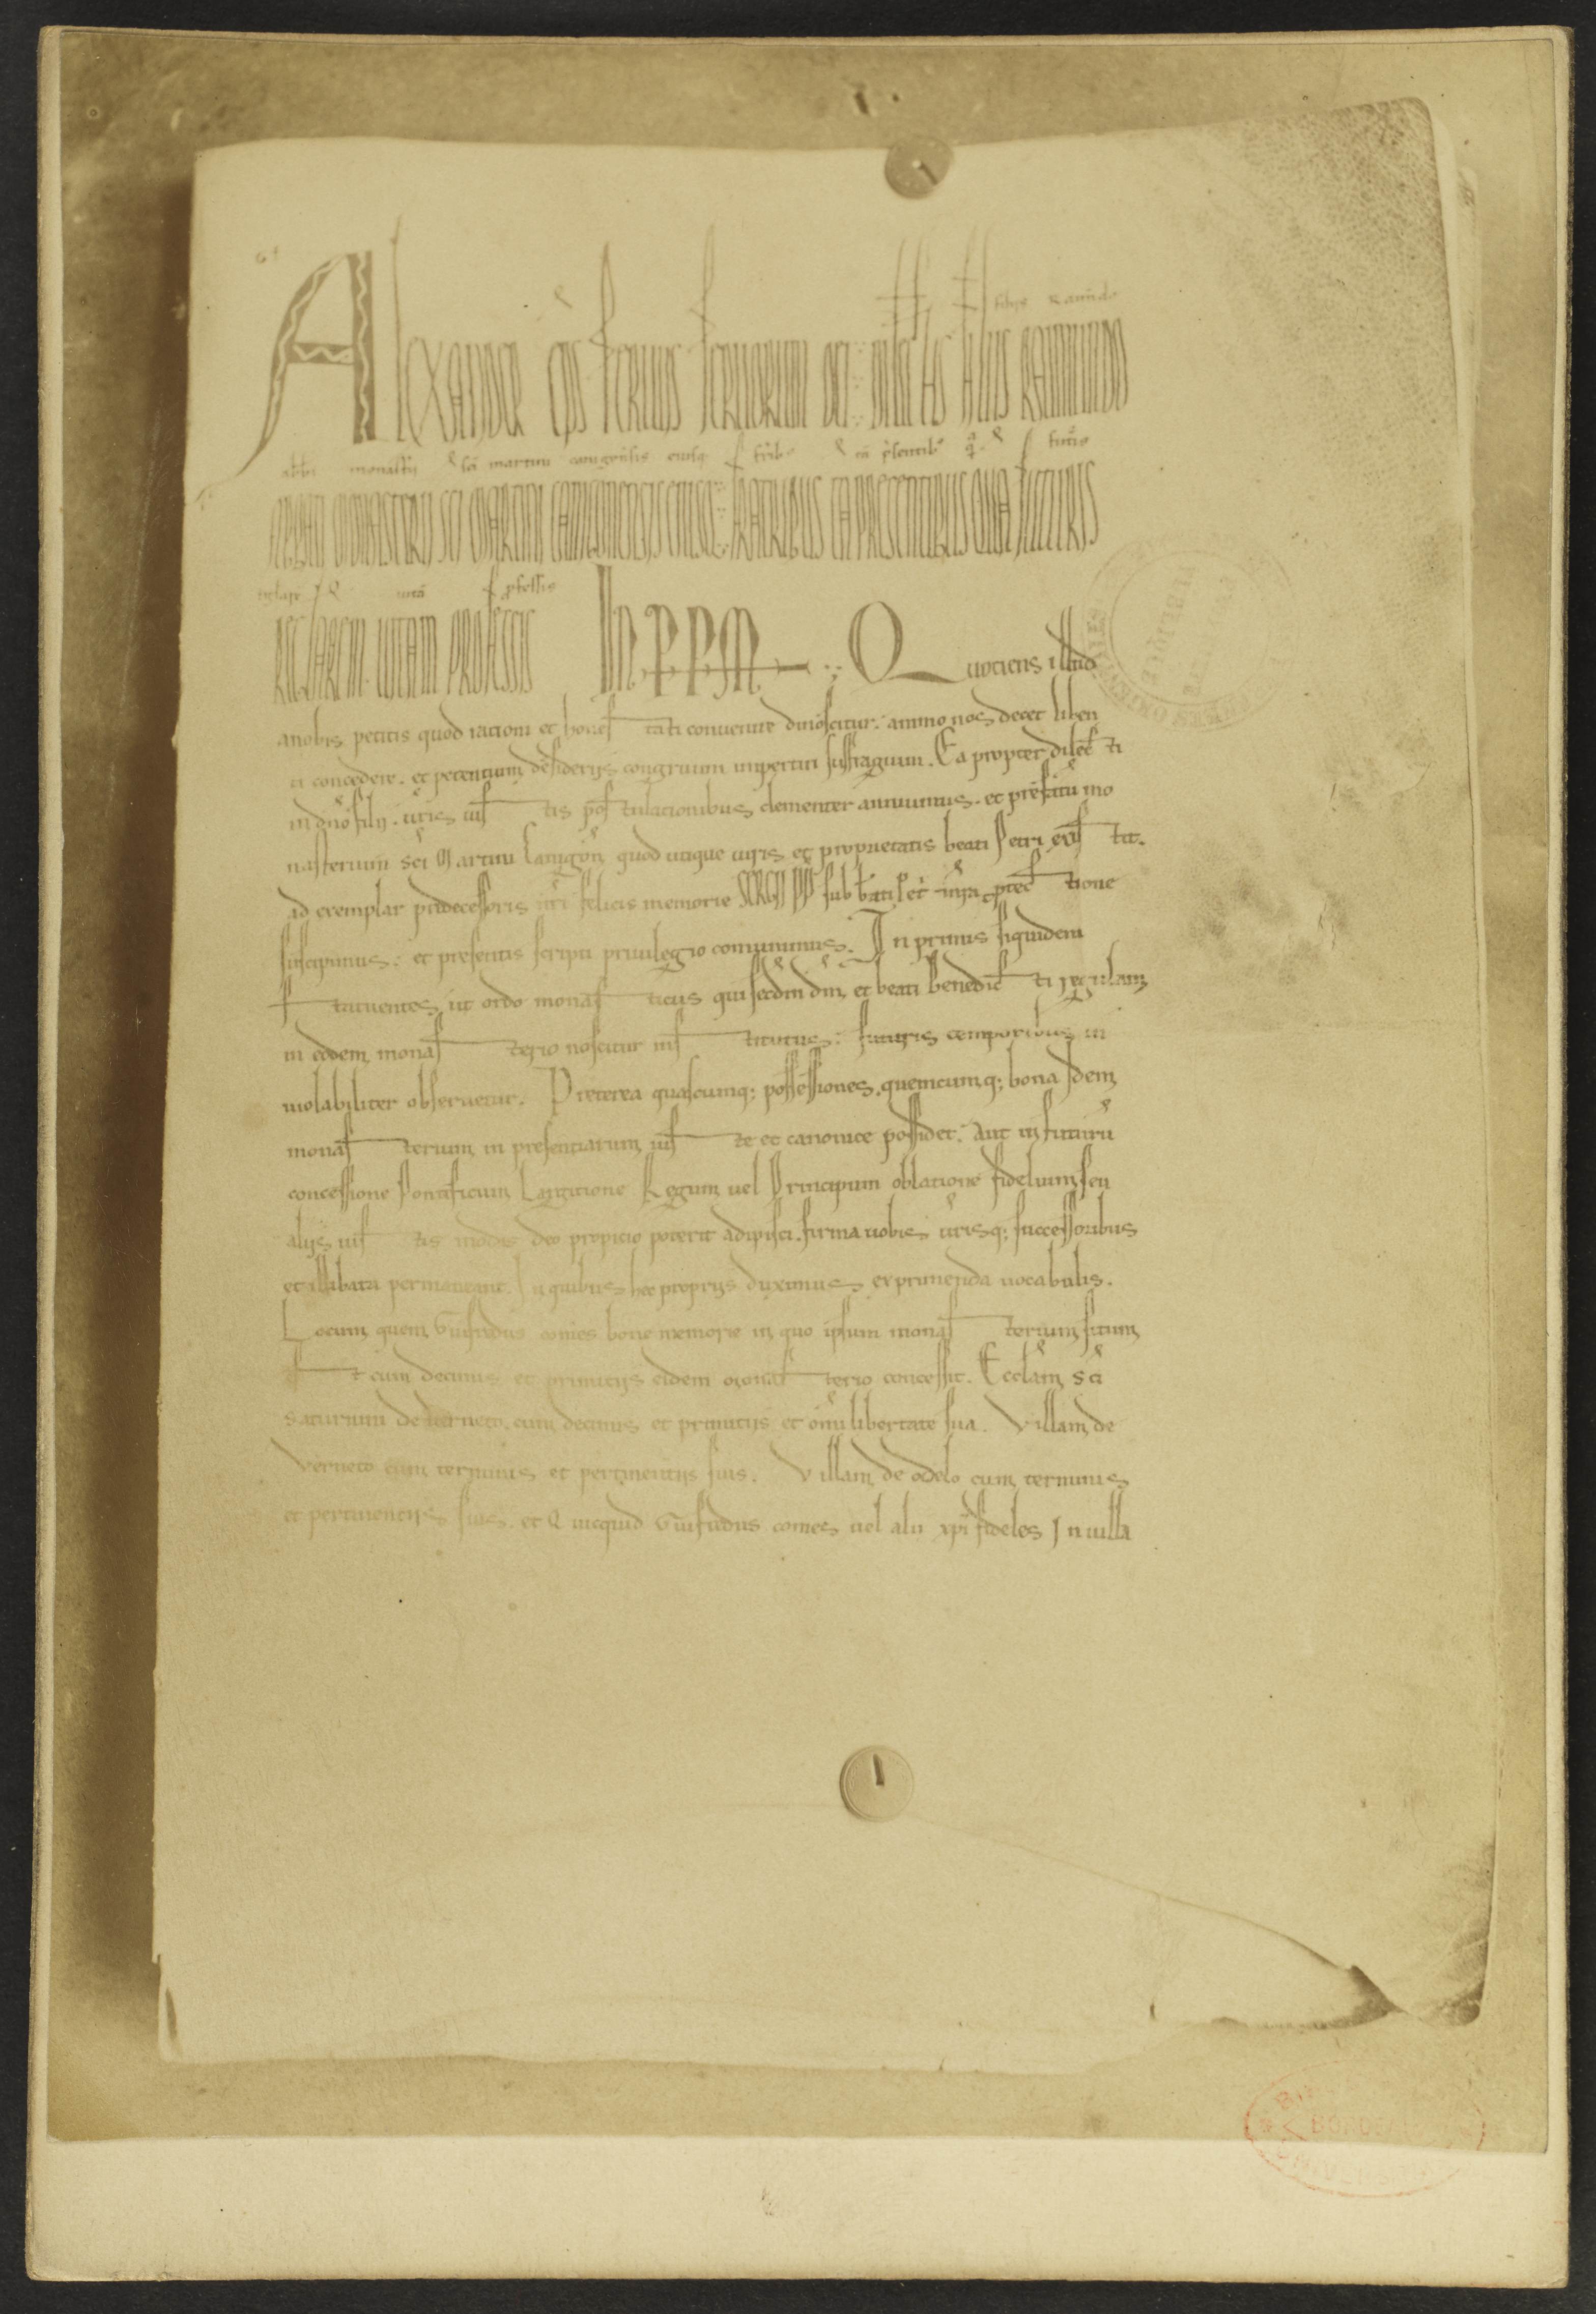 filijs Raimūdo
Alexander ep̄s seruus seruorum dei. dilectis filiis Raimundo
abb̄i monast̄ij sc̄i martini canigōnsis eiusq; frib; tā p̄sentib; q̄ futuris
Abbati monasterii sc̄i Martini canigonensis eiusque fratribus tā presentibus quā futuris
regularē uitā professis
regularem uitam professis IN PPM Quotiens illud
anobis petitis quod rationi et honestati conuenire dinoscitur: animo nos decet liben
ti concedere. et petentium desiderijs congruum impertiri suffragium. Ea propter dilecti
in dn̄o filij. ūris iustis postulationibus clementer annuimus. et prefatū mo
nasterium sc̄i Martini Canigon̄ quod utique iuris et proprietatis beati Petri existit.
ad exemplar predecessoris nr̄i felicis memorie SERGII PP̄ sub b̄ati Pet̄ et nr̄a protectione
suscipimus: et presentis scripti priuilegio comunimus. In primis siquidem
statuentes ut ordo monasticus qui secd̄m dm̄ et beati benedicti regulam
in eodem monasterio noscitur institutus: futuris temporibus in
uiolabiliter obseruetur. Preterea quascumq; possessiones. quemcumq; bona idem
monasterium in presentiarum iuste et canonice possidet. aut in futurū
concessione Pontificum Largitione Regum uel Principum oblatione fidelium seu
alijs iustis modis deo propicio poterit adipisci. firma uobis ūrisq; successoribus
et illibata permaneant. In quibus hec proprijs duximus exprimenda uocabulis.
Locum quem Guifredus comes bone memorie in quo ipsum monasterium situm
est cum decimis et primicijs eidem monasterio concessit. Eccl̄am sc̄i
Saturnini de uerneto. cum decimis et primitijs et om̄i libertate sua. Villam de
Verneto cum terminis et pertinentijs suis. Villam de odelo cum terminis
et pertinentijs suis. et Quicquid Guifredus comes uel alii xp̄i fideles In uilla